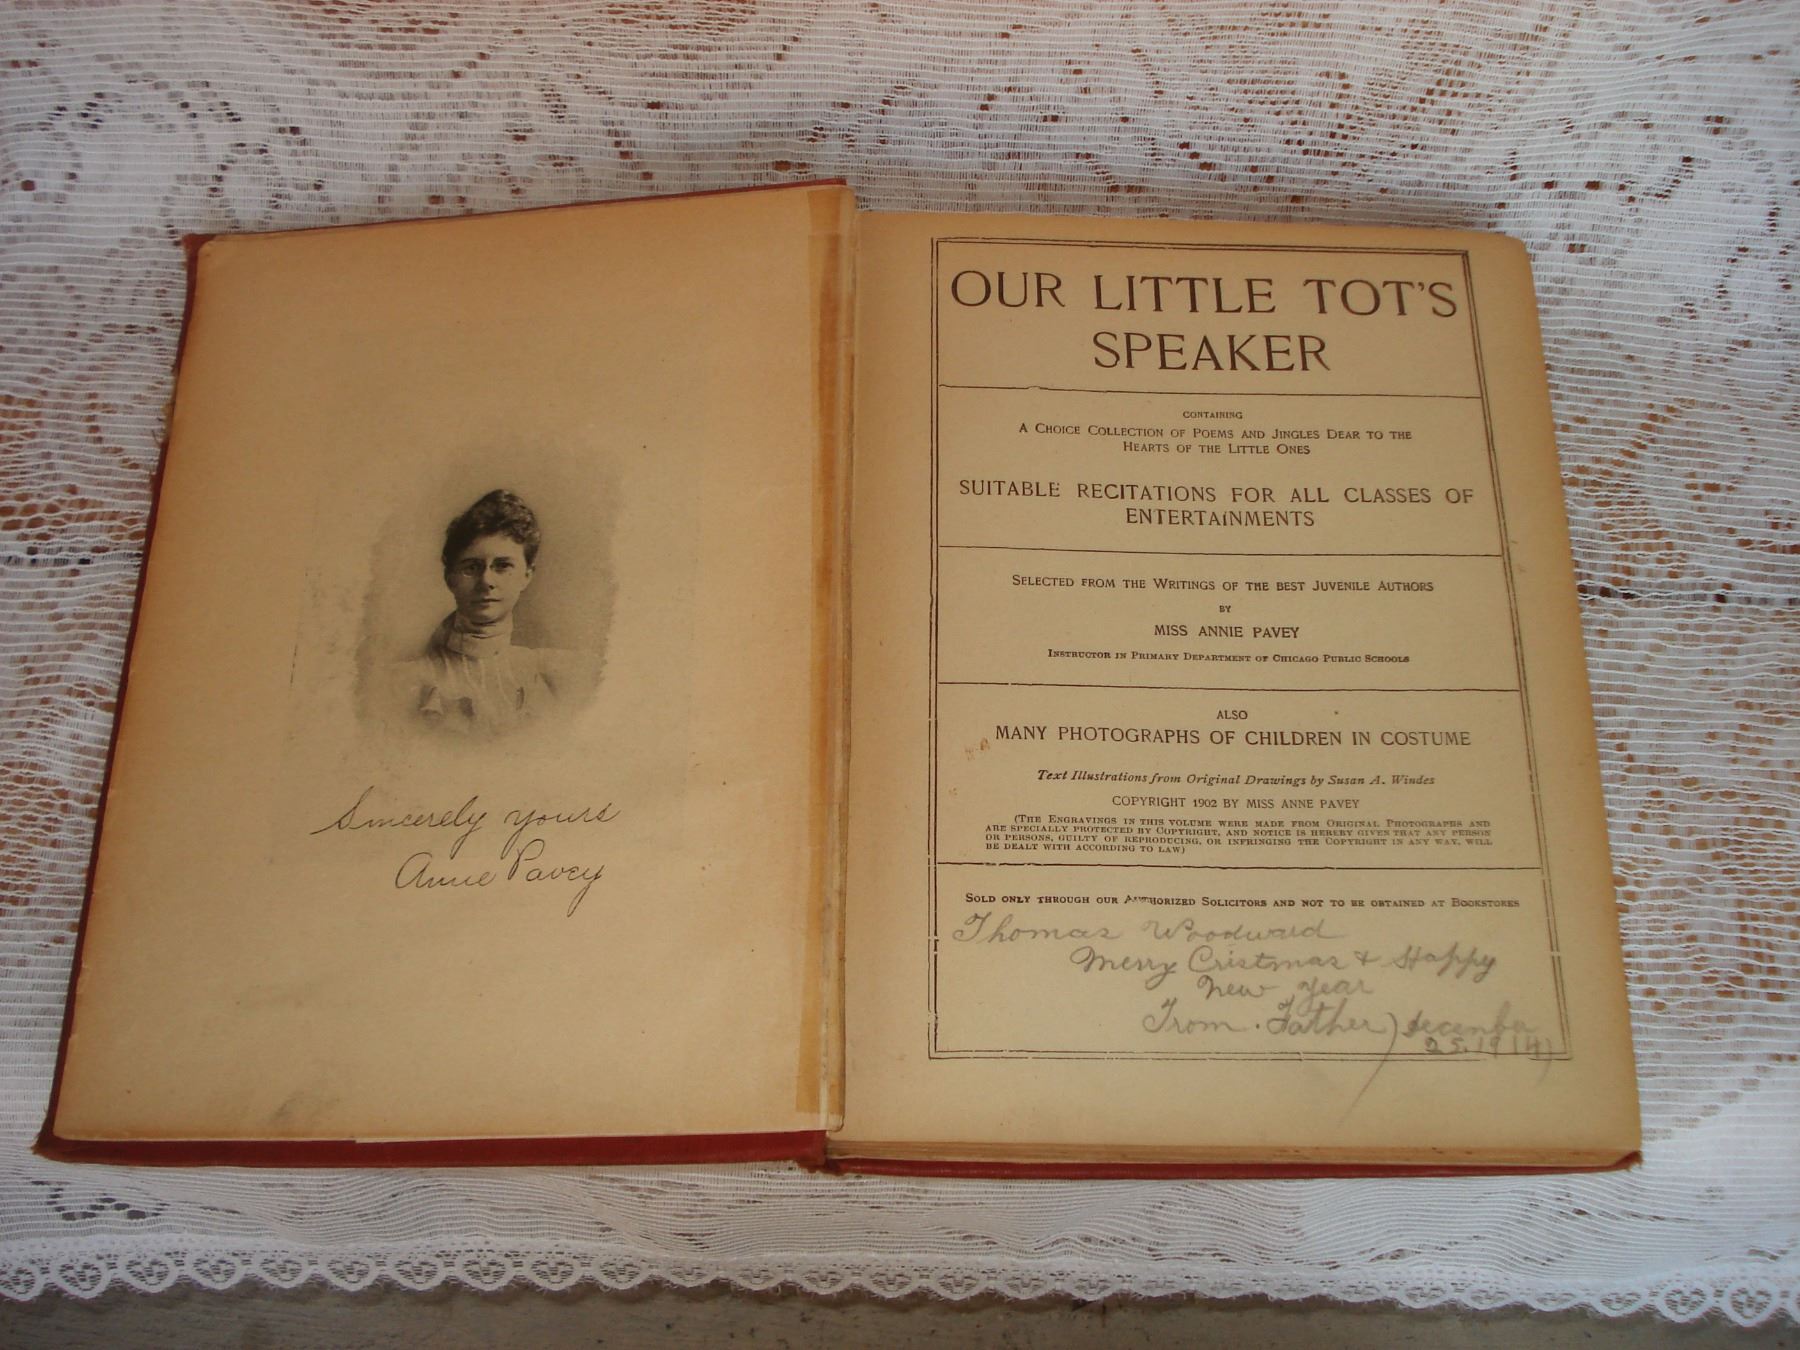 Sincerely yours
Annie Pavey
OUR LITTLE TOT'S
SPEAKER
CONTAINING
A CHOICE COLLECTION OF POEMS AND JINGLES DEAR TO THE
HEARTS OF THE LITTLE ONES
SUITABLE RECITATIONS FOR ALL CLASSES OF
ENTERTAINMENTS
SELECTED FROM THE WRITINGS OF THE BEST JUVENILE AUTHORS
BY
MISS ANNIE PAVEY
INSTRUCTOR IN PRIMARY DEPARTMENT OF CHICAGO PUBLIC SCHOOLS
ALSO
MANY PHOTOGRAPHS OF CHILDREN IN COSTUME
Text Illustrations from Original Drawings by Susan A. Windes
COPYRIGHT 1902 BY MISS ANNE PAVEY
(THE ENGRAVINGS IN THIS VOLUME WERE MADE FROM ORIGINAL PHOTOGRAPHS AND
ARE SPECIALLY PROTECTED BY COPYRIGHT, AND NOTICE IS HEREBY GIVEN THAT ANY PERSON
OR PERSONS, GUILTY OF REPRODUCING, OR INFRINGING THE COPYRIGHT IN ANY WAY, WILL
BE DEALT WITH ACCORDING TO LAW)
SOLD ONLY THROUGH OUR AUTHORIZED SOLICITORS AND NOT TO BE OBTAINED AT BOOKSTORES
Thomas Woodward
Merry Cristmas & Happy
New year
From. Father) decenber
25. 1914)